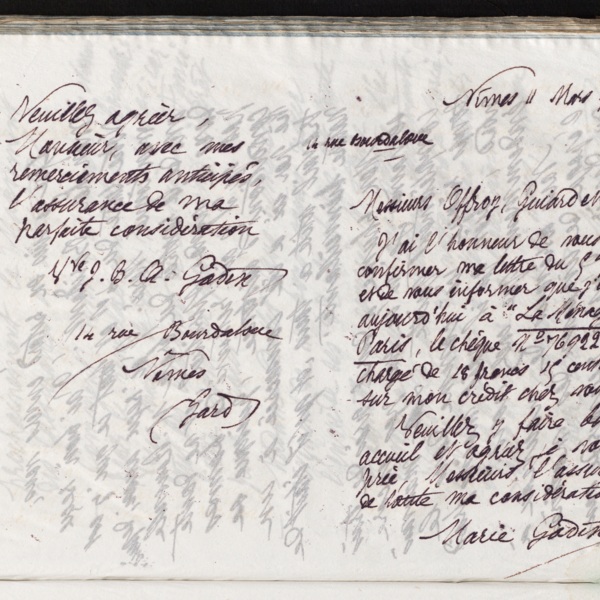 Veuillez agréer,
Monsieur, avec mes
remerciements anticipés,
l'assurance de ma
parfaite considération
Vve J. B. A. Gadin
14 rue Bourdaloue
Nîmes
(Gard)
Nîmes 11 Mars
14 rue Bourdaloue
Messieurs Offroy, Guiard et
J'ai l'honneur de vous
confirmer ma lettre du 5
et de vous informer que j'
aujourd'hui à "La Ménag
Paris, le chèque No 76922
chargé de 18 francs 15 cent
sur mon crédit chez vou
Veuillez y faire bo
accueil et agréer, je vo
prie, Messieurs, l'assu
de toute ma considératio
Marie Gadin